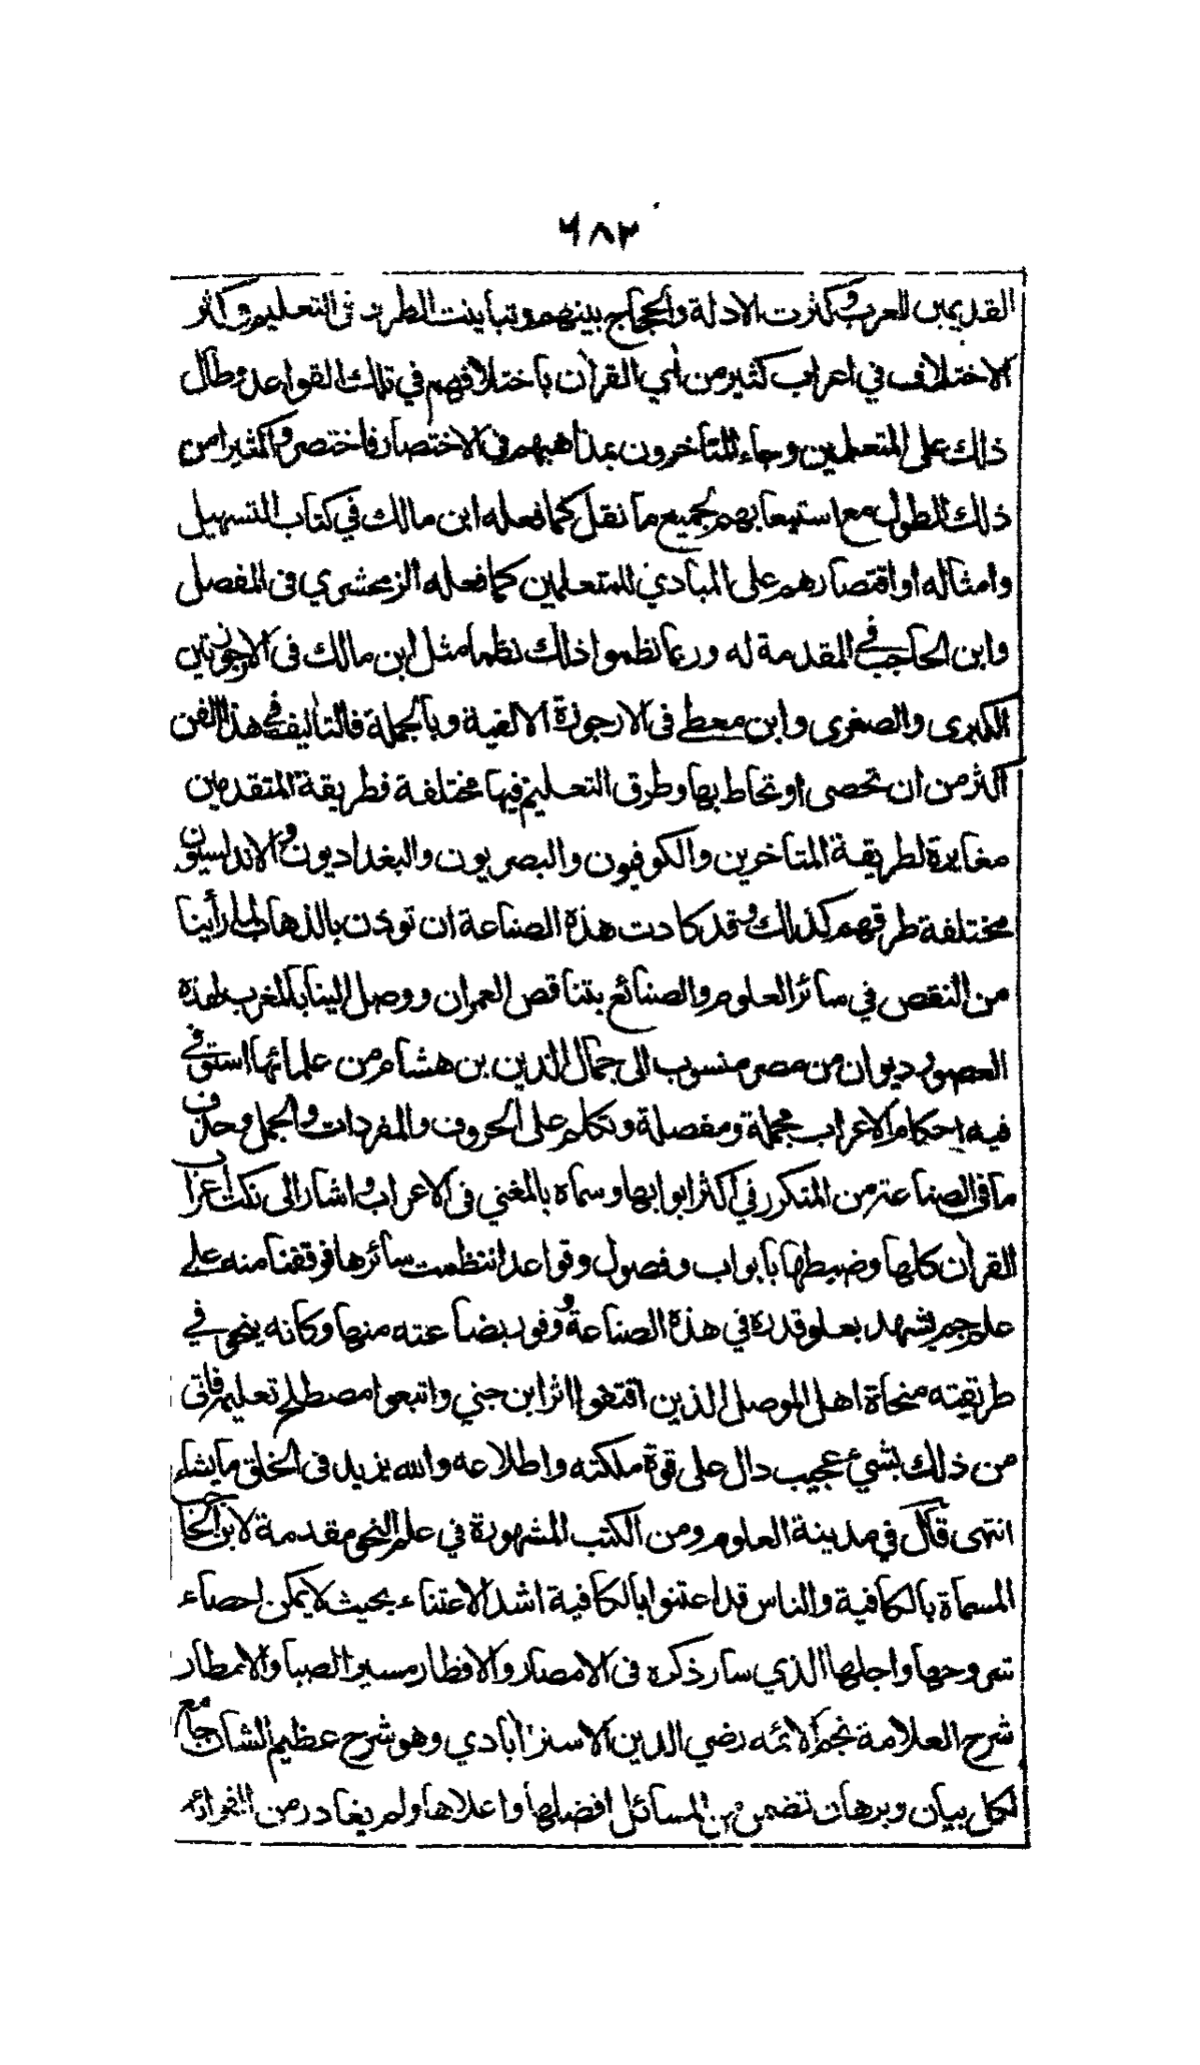 ٦٨٢
القديمين للعرب وكثرت الادلة والحجاج بينهم وتباينت الطرق فى التعليم وكثر
الاختلاف في اعراب كثير من أي القرأن باختلافهم في تلك القواعد وطال
ذلك على المتعلمين وجاء المتأخرون بمذاهبهم فى الاختصار فاختصروا كثيرا من
ذلك الطول مع استيعابهم لجميع ما نقل كما فعله ابن مالك في كتاب التسهيل
وامثاله او اقتصارهم على المبادي للمتعلمين كما فعله الزمخشري فى المفصل
وابن الحاجب في المقدمة له وربما نظموا ذلك نظما مثل ابن مالك فى الارجوزتين
الكبرى والصغرى وابن معطي فى الارجوزة الالفية وبالجملة فالتأليف في هذا الفن
اكثر من ان تحصى او تحاط بها وطرق التعليم فيها مختلفة فطريقة المتقدمين
مغايرة لطريقة المتاخرين والكوفيون والبصريون والبغداديون والاندلسيون
مختلفة طرقهم كذلك وقد كادت هذه الصناعة ان توذن بالذهاب لما رأينا
من النقص في سائر العلوم والصنائع بتناقص العمران ووصل الينا بالمغرب لهذه
العصور ديوان من مصر منسوب الى جمال الدين بن هشام من علمائها استوفى
فيه احكام الاعراب مجملة ومفصلة وتكلم على الحروف والمفردات والجمل وحذف
ما فى الصناعة من المتكرر في اكثر ابوابها وسماه بالمغني فى الاعراب واشار الى نكت اعراب
القرأن كلها وضبطها بابواب وفصول وقواعد انتظمت سائرها فوقفنا منه على
علم جم يشهد بعلو قدره في هذه الصناعة ووفور بضاعته منها وكانه ينحى في
طريقته منحاة اهل الموصل الذين اقتفوا اثر ابن جني واتبعوا مصطلح تعليمه فاتى
من ذلك بشيء عجيب دال على قوة ملكته واطلاعه والله يزيد فى الخلق ما يشاء
انتهى قال في مدينة العلوم ومن الكتب المشهورة في علم النحو مقدمة لابن الحاجب
المسماة بالكافية والناس قد اعتنوا بالكافية اشد الاعتناء بحيث لا يمكن احصاء
شروحها واجلها الذي سار ذكره فى الامصار والاقطار مسير الصبا والامطار
شرح العلامة نجم الائمه رضي الدين الاسترابادي وهو شرح عظيم الشان جامع
لكل بيان وبرهان تضمن من المسائل افضلها واعلاها ولم يغادر من الفوائد